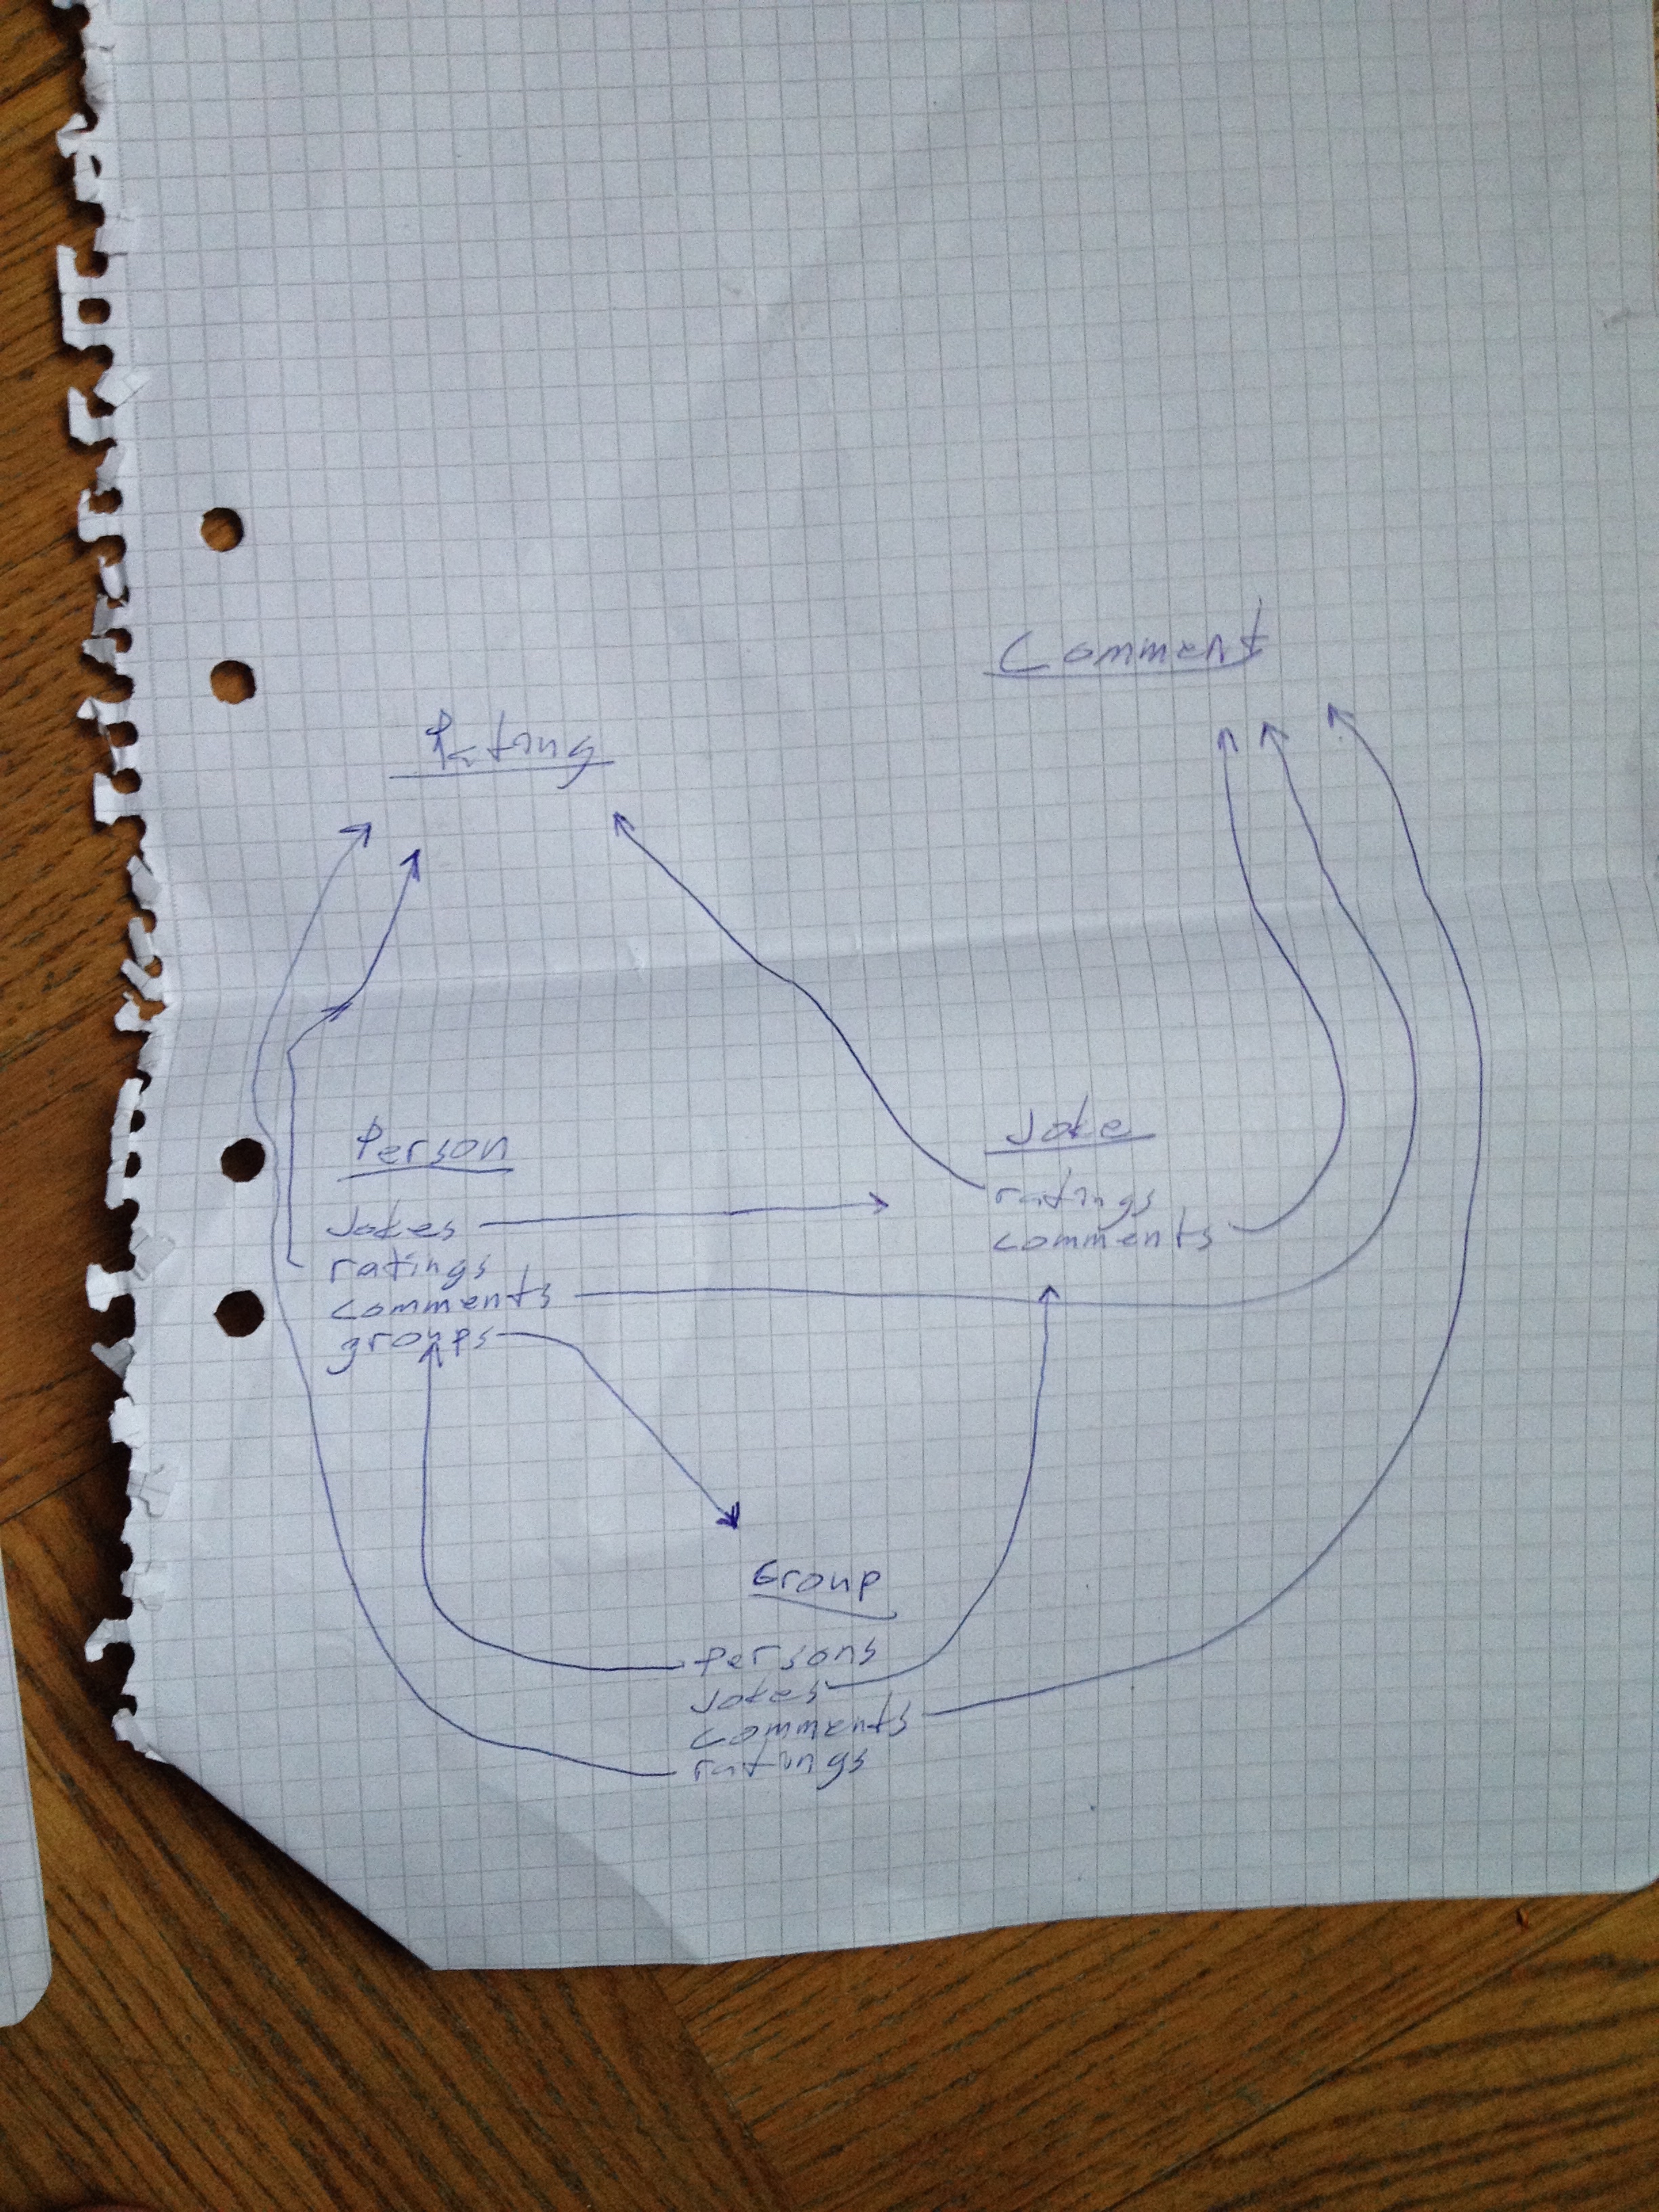 Comment
Rating
Person
Jokes
ratings
comments
groups
Joke
ratings
comments
Group
persons
Jokes
comments
ratings